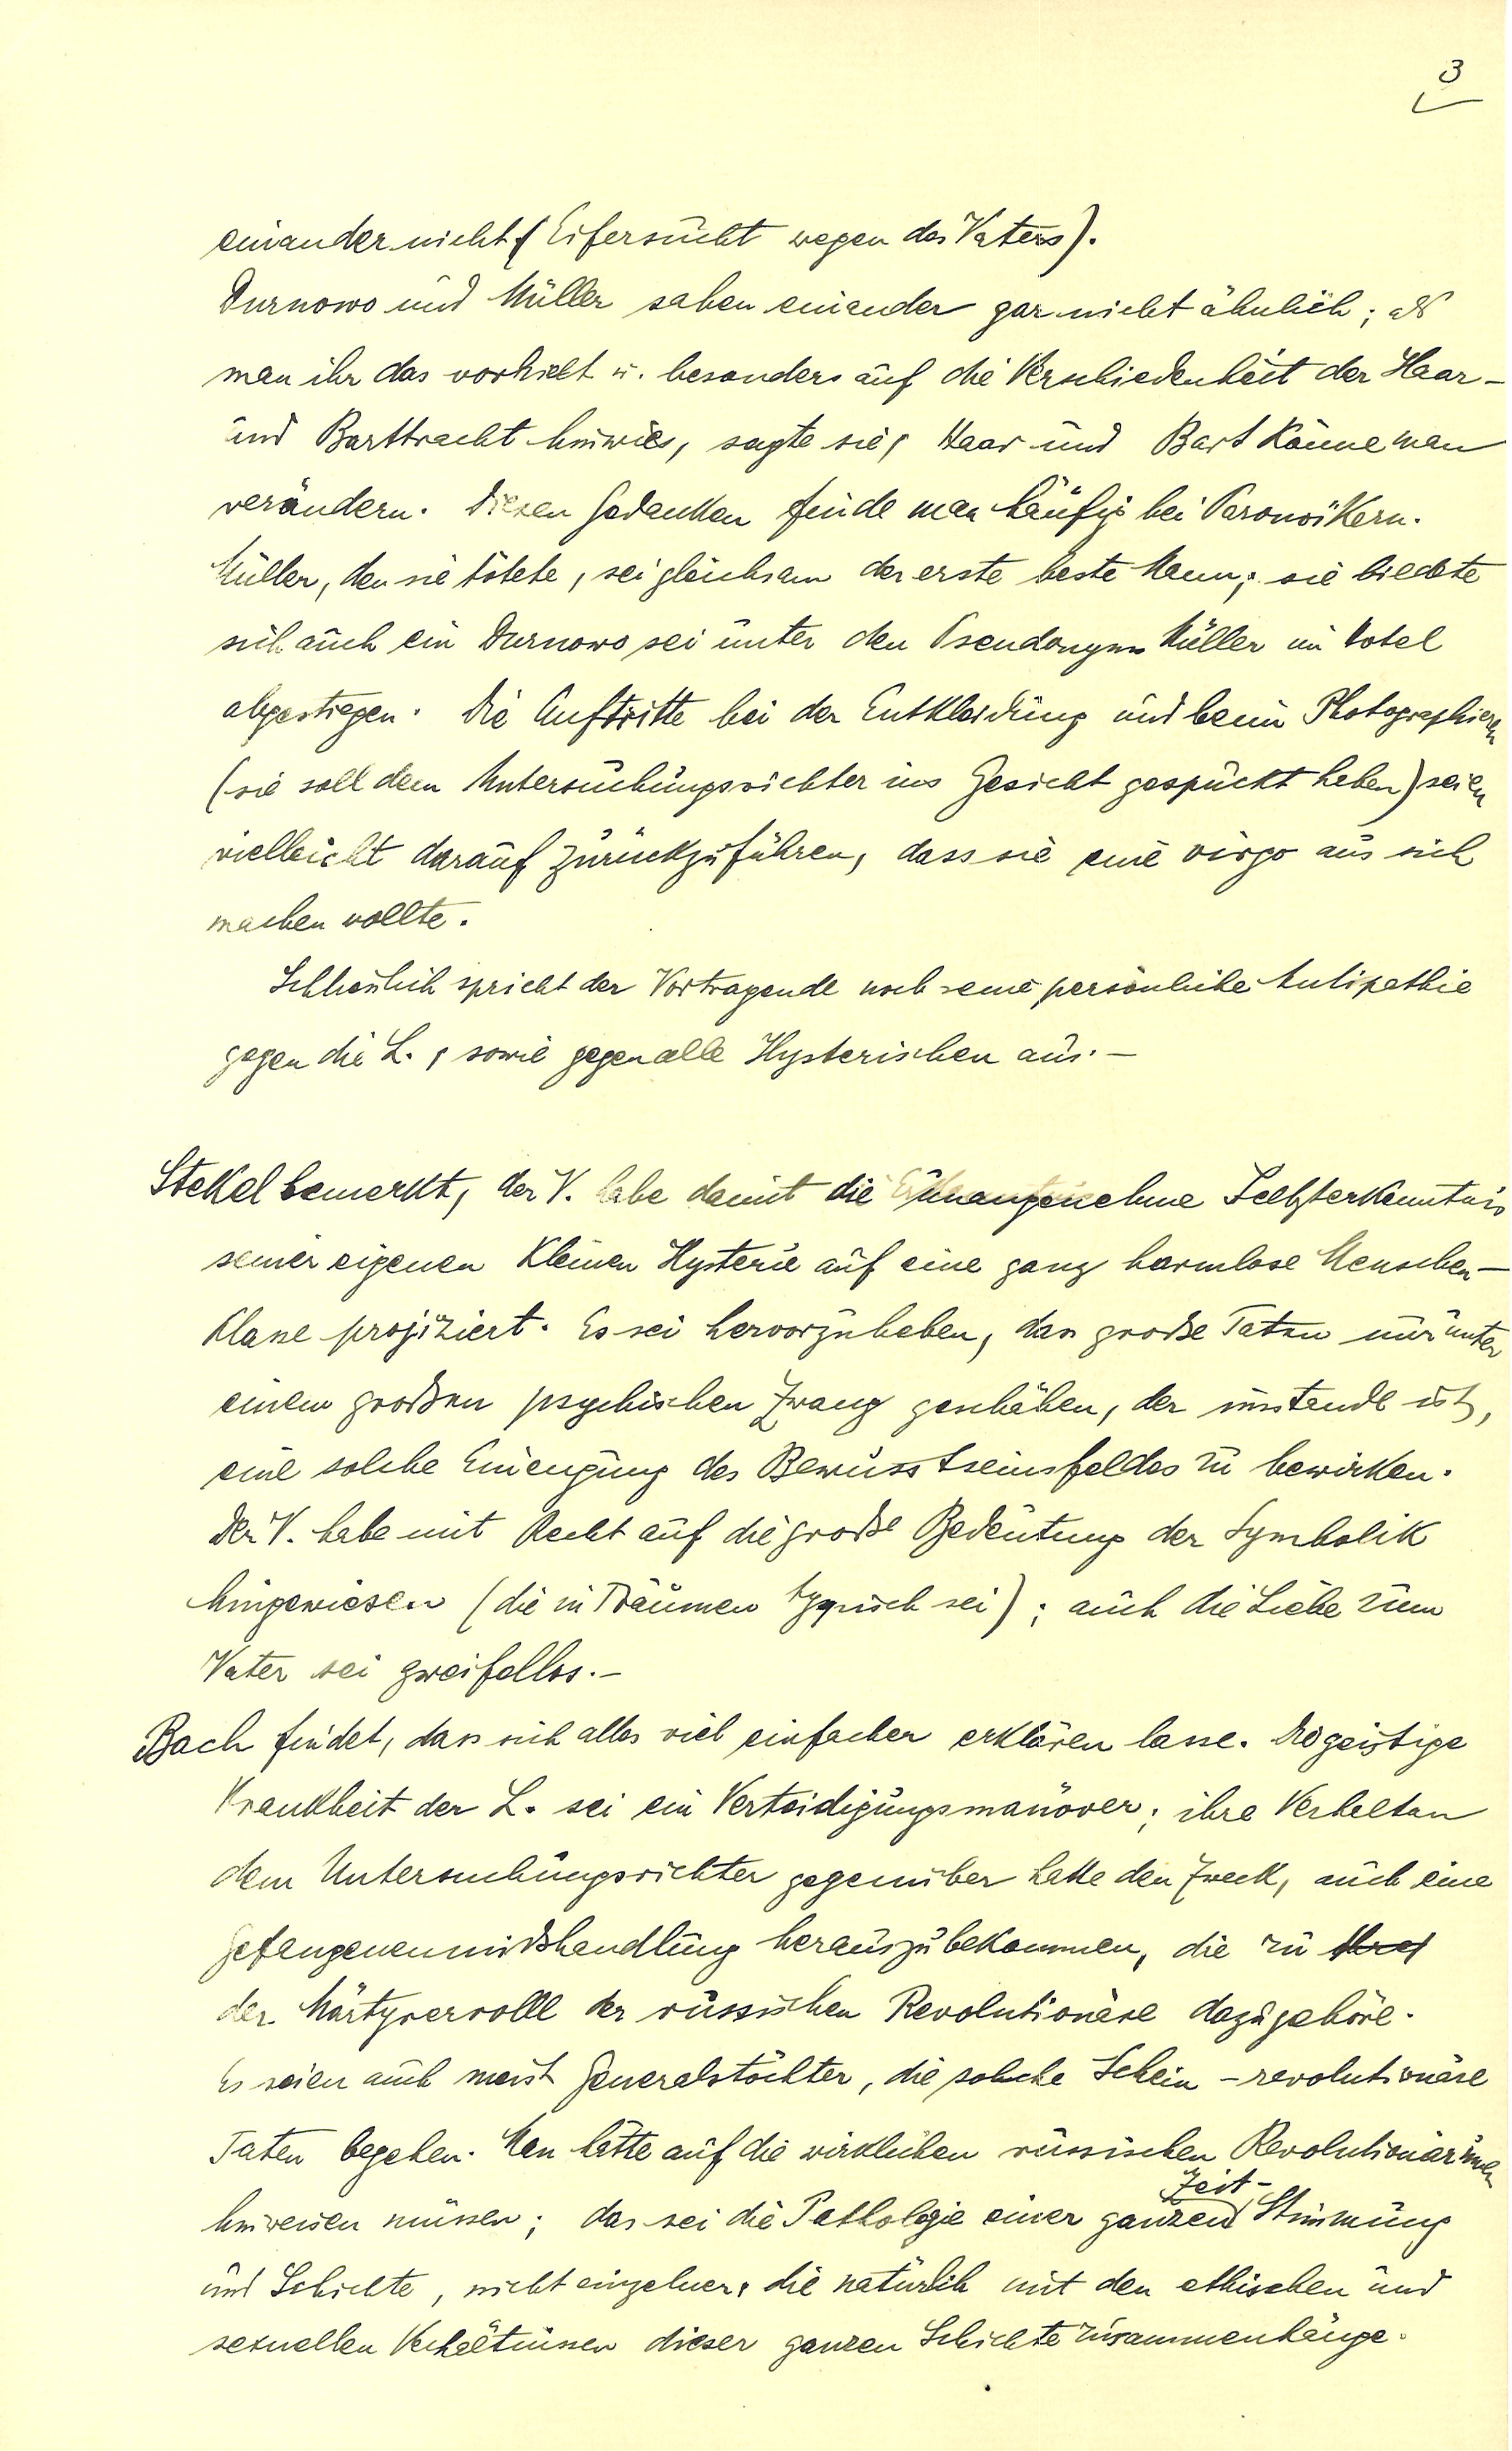 3
einander nicht (Eifersucht wegen des Vaters).
Durnowo und Müller sahen einander gar nicht ähnlich; als
man ihr das vorhielt u. besonders auf die Verschiedenheit der Haar-
und Barttracht hinwies, sagte sie, Haar und Bart könne man
verändern. Diesen Gedanken finde man häufig bei Paranoikern.
Müller, den sie tötete, sei gleichsam der erste beste Mann; sie bildete
sich auch ein Durnowo sei unter den Pseudonym Müller im Hotel
abgestiegen. Die Auftritte bei der Entkleidung und beim Photographieren
(sie soll dem Untersuchungsrichter ins Gesicht gespuckt haben) seien
vielleicht darauf zurückzuführen, dass sie eine virgo aus sich
machen wollte.
Schließlich spricht der Vortragende noch seine persönliche Antipathie
gegen die L., sowie gegen alle Hysterischen aus.-
Stekel bemerkt, der V. habe damit die unangenehme Selbsterkenntnis
seiner eigenen kleinen Hysterie auf eine ganz harmlose Menschen-
klasse projiziert. Es sei hervorzuheben, dass große Taten nur unter
einem großen psychischen Zwang geschähen, der imstande ist,
eine solche Einengung des Bewusstseinsfeldes zu bewirken.
Der V. habe mit Recht auf die große Bedeutung der Symbolik
hingewiesen (die in Träumen typisch sei); auch die Liebe zum
Vater sei zweifellos.-
Bach findet, dass sich alles viel einfacher erklären lasse. Die geistige
Krankheit der L. sei ein Verteidigungsmanöver; ihre Verhalten
dem Untersuchungsrichter gegenüber hatte den Zweck, auch eine
Gefangenenmißhandlung herauszubekommen, die zu
der Märtyrerrolle der russischen Revolutionäre dazugehöre.
Es seien auch meist Generalstöchter, die solche Schein-revolutionäre
Taten begehen. Man hätte auf die wirklichen russischen Revolutionärinnen
hinweisen müssen; das sei die Pathologie einer ganzen Zeit-Stimmung
und Schichte, nicht einzelner, die natürlich mit den ethischen und
sexuellen Verhältnissen dieser ganzen Schichte zusammenhänge.